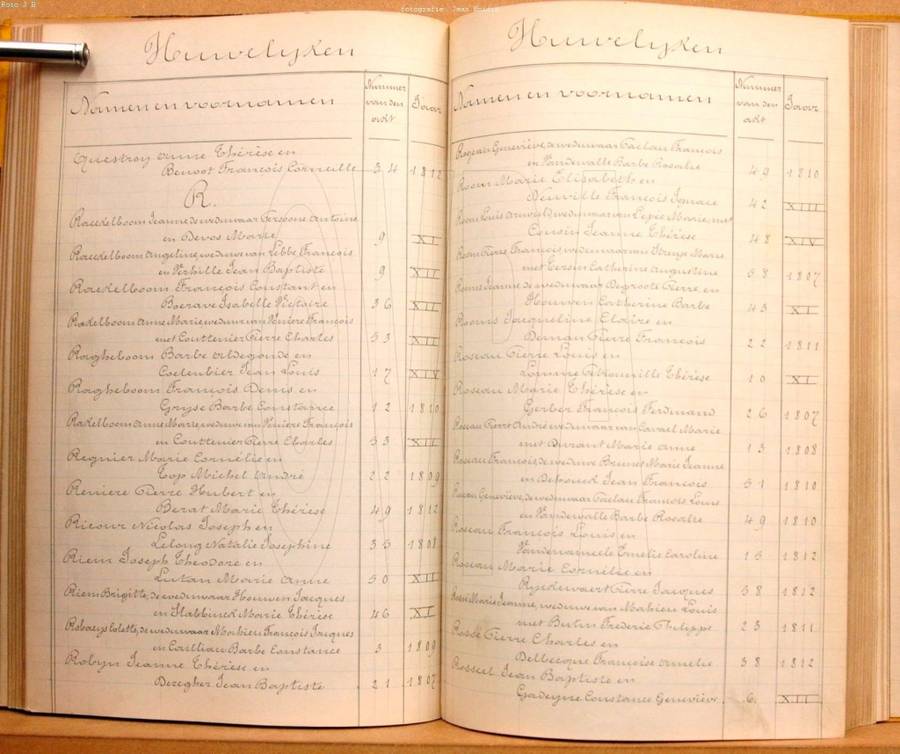 Foto J B
fotografie: Jean
Huwelyken
Namen en voornamen
Nummer van den akt
Jaar
Questroy Anne Thérèse en
Benoot François Corneille 34 1812
R.
Raeckelboom Jeanne de weduwaar Persoone Antoine
en Devos Marie 9 XI
Raeckelboom Angeline, weduwe van Lebbe François
en Verhille Jean Baptiste 9 XII
Raeckelboom François Constant en
Boerave Isabelle Victoire 36 XII
Radelboom Anne Marie, weduwe van Reniere François
met Couttenier Pierre Charles 33 XII
Ragheboom Barbe Aldegonde en
Coelenbier Jean Louis 17 XIV
Ragheboom François Denis en
Gryse Barbe Constance 12 1810
Radelboom Anne Marie, weduwe van Reniere François
en Couttenier Pierre Charles 33 XII
Regnier Marie Cornélie en
Top Michel André 22 1809
Reniere Pierre Hubert en
Berat Marie Thérèse 49 1812
Ricour Nicolas Joseph en
Lelong Natalie Josephine 35 1808
Riem Joseph Theodore en
Lutan Marie Anne 50 XII
Riem Brigitte, de weduwaar Houwen Jacques
en Stabbinck Marie Thérèse 46 XI
Robaeys Colette, de weduwaar Mathieu François Jacques
en Coulliau Barbe Constance 3 1809
Robyn Jeanne Thérèse en
Deregher Jean Baptiste 21 1807
Huwelyken
Namen en voornamen
Nummer van den akt
Jaar
Roseau Geneviève, de weduwaar Paclau François
en Vandewalle Barbe Rosalie 49 1810
Marie Elisabeth en
Neuville François Ignace 42 XIII
Louis de weduwaar van Lepée Marie, met
Cousin Jeanne Thérèse 48 XIV
Pierre François, weduwaar van Marie
met Persin Catherine Augustine 58 1807
Jeanne de weduwaar Degroote Pierre, en
Houwen Catherine Barbe 43 XI
Rooms Jacqueline Claire en
Deman Pierre François 22 1811
Roseau Pierre Louis en
Pétronille Thérèse 10 XI
Roseau Marie Thérèse en
Gerber François Ferdinand 26 1807
Roseau Pierre André weduwaar van Marie
met Durant Marie Anne 13 1808
Roseau François, de weduwe Marie Jeanne
en Jean François 51 1810
Roseau Geneviève, de weduwaar Paclau François Louis
en Vandewalle Barbe Rosalie 49 1810
Roseau François Louis en
Amelie Caroline 15 1812
Roseau Marie Cornélie en
Ryckewaert Pierre Jacques 58 1812
Marie Jeanne, weduwe van Mahieu Louis
met Butin Frederic Philippe 23 1811
Pierre Charles en
Delbecque Françoise Amelie 38 1812
Rosseel Jean Baptiste en
Gadeyne Constance Geneviève 6 XII